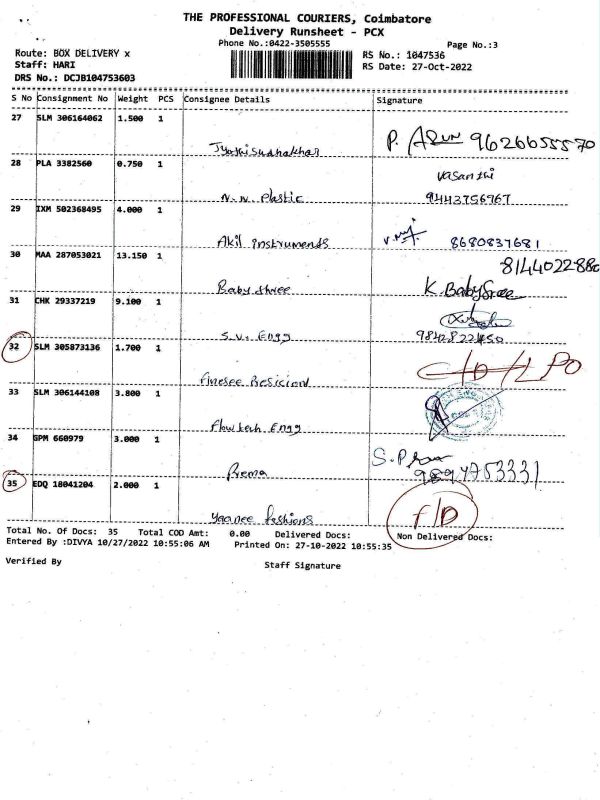 THE PROFESSIONAL COURIERS, Coimbatore
Delivery Runsheet - PCX
Phone No.:0422-3505555
Page No.:3
Route: BOX DELIVERY x
Staff: HARI
DRS No.: DCJB104753603
RS No.: 1047536
RS Date: 27-Oct-2022
S No Consignment No Weight PCS Consignee Details Signature
27 SLM 306164062 1.500 1
Jyothisudhakhar P. ARUN 9626655570
28 PLA 3382560 0.750 1 vasanthi
N.N. Plastic 9443756967
29 IXM 502368495 4.000 1
Akil instruments 8680837681
30 MAA 287053021 13.150 1 8144022880
Baby shree K. BabySree
31 CHK 29337219 9.100 1
S.V. Engg 9842822450
32 SLM 305873136 1.700 1
33 SLM 306144108 3.800 1
Flowtech Engg
34 GPM 660979 3.000 1
Prema 9894753331
35 EDQ 18041204 2.000 1
Yaanee fashions F/D
Total No. Of Docs: 35 Total COD Amt: 0.00 Delivered Docs: Non Delivered Docs:
Entered By :DIVYA 10/27/2022 10:55:06 AM Printed On: 27-10-2022 10:55:35
Verified By Staff Signature